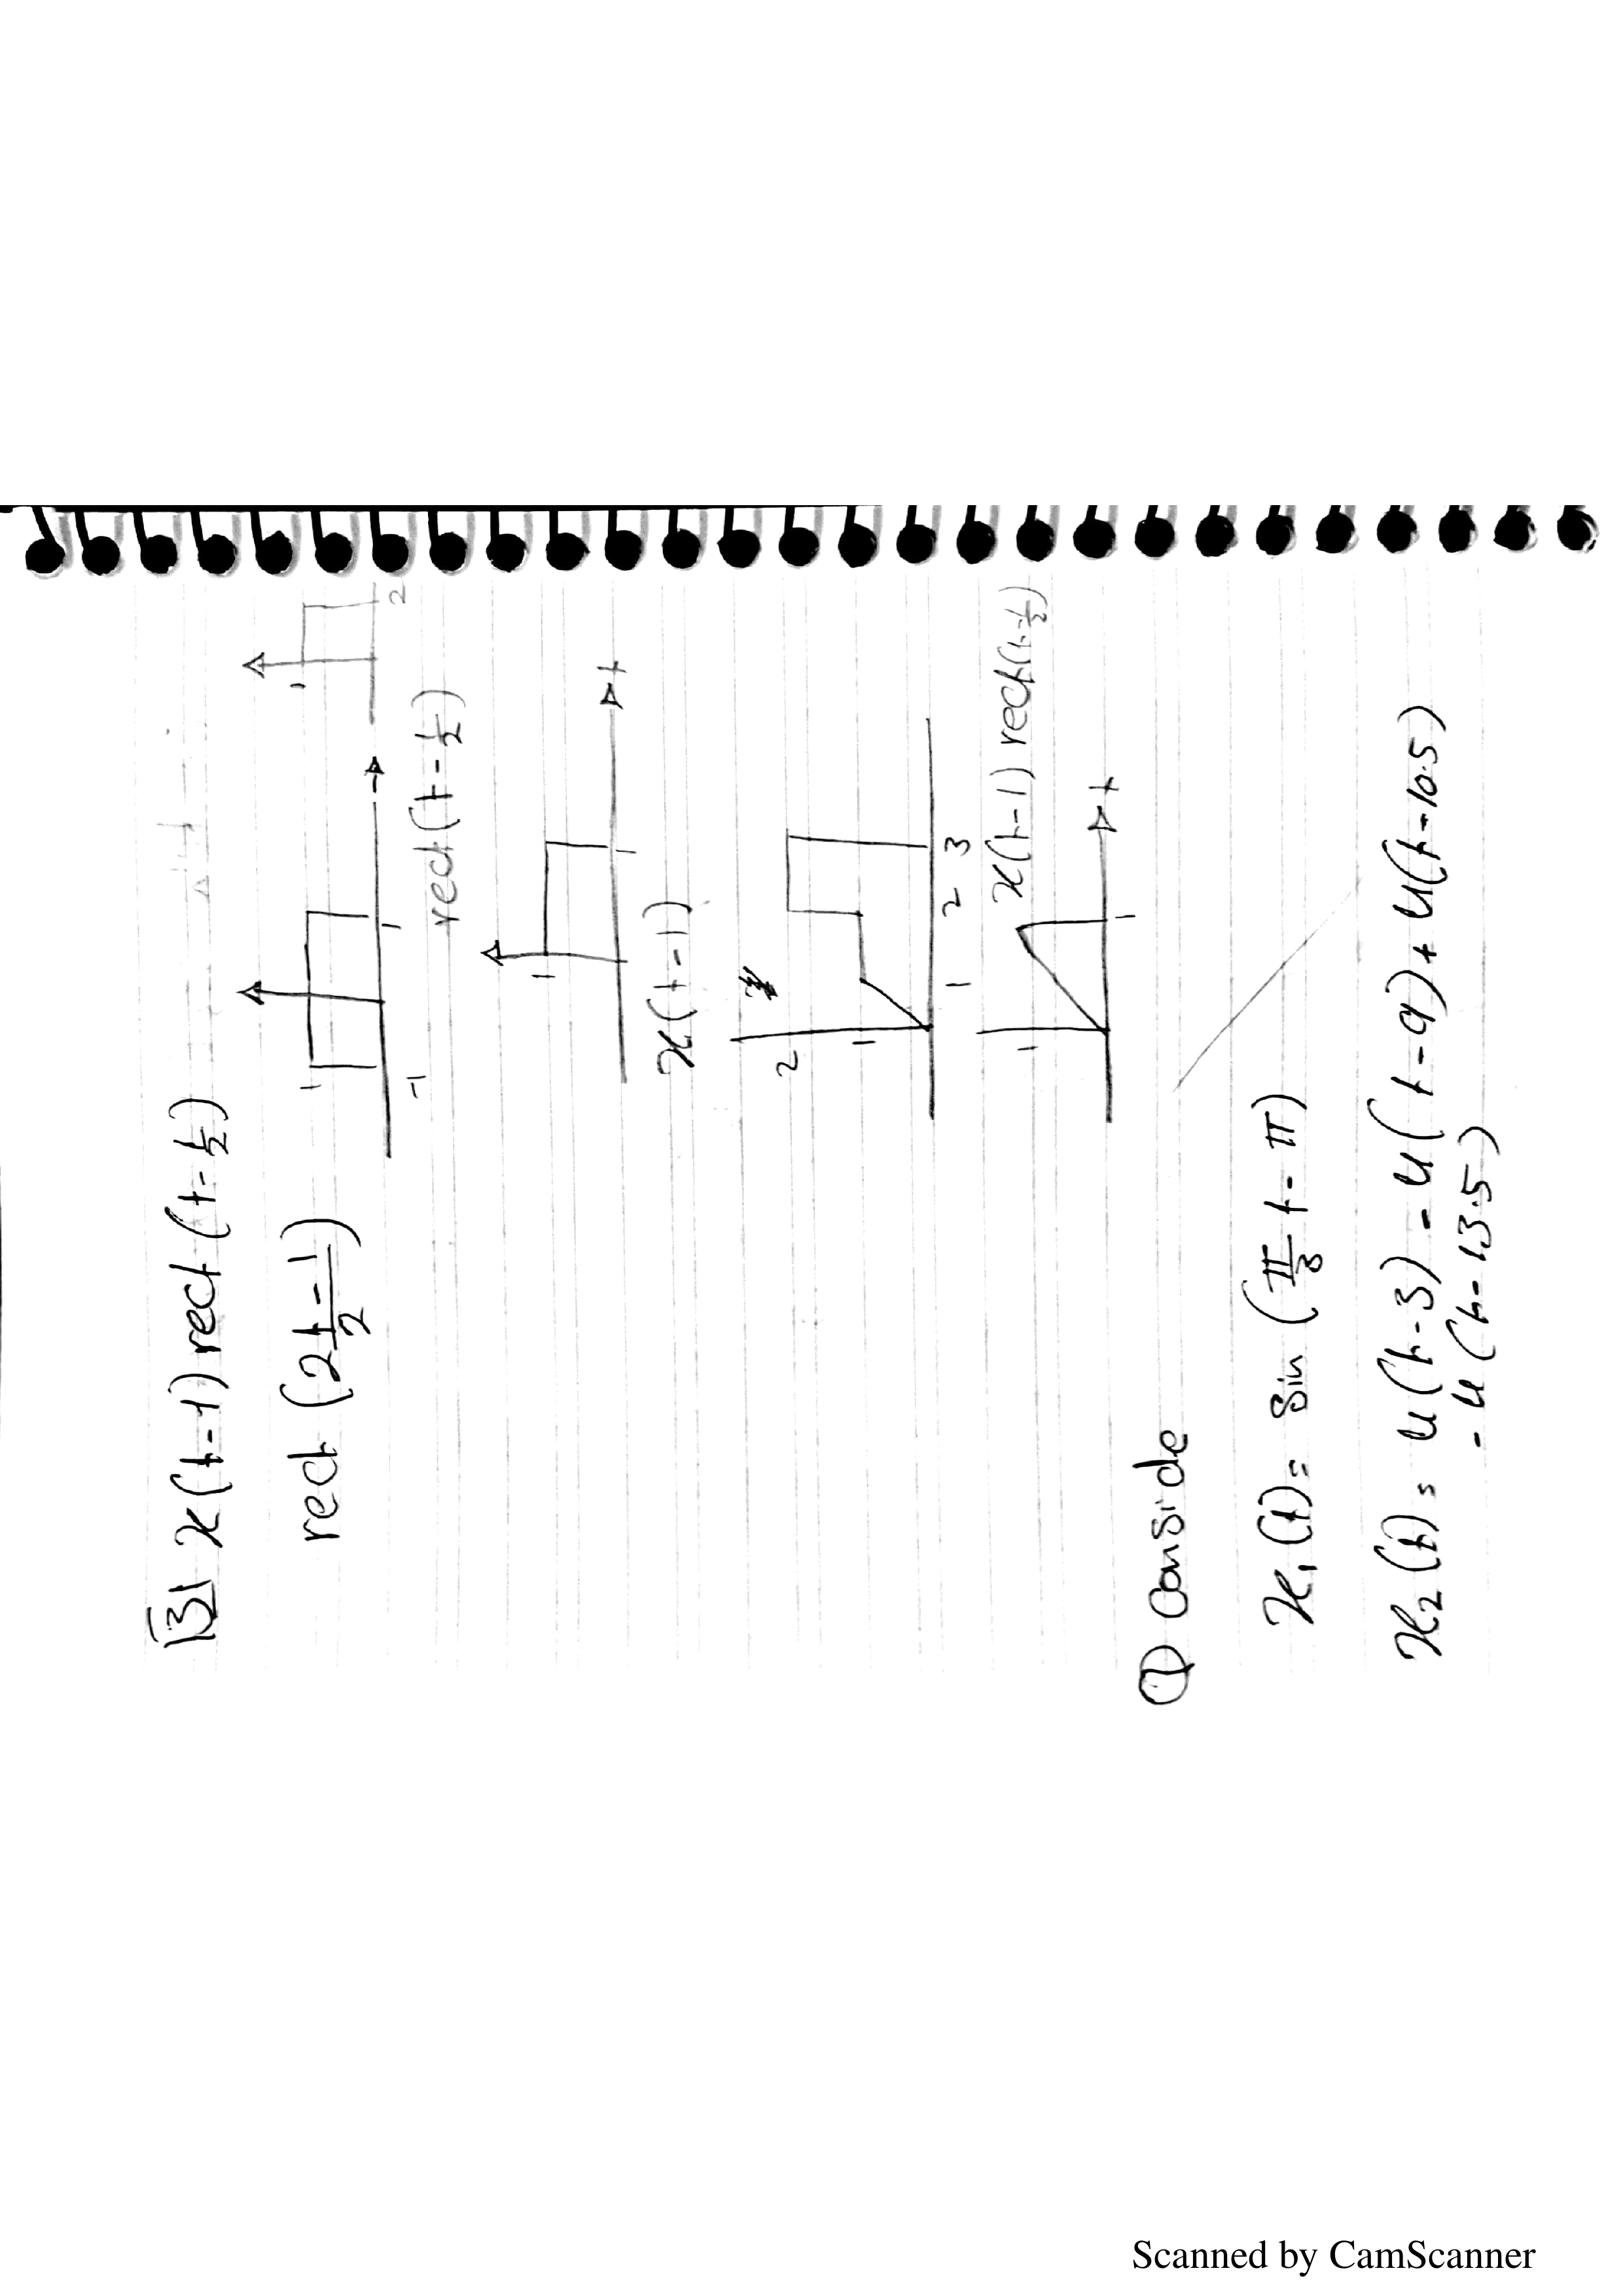 3 x(t-1) rect(t-1/2)
rect (2t-1/2)
1
-1 1
1
2
rect(t-1/2)
1
t
1
x(t-1)
2
1
1 2 3
x(t-1) rect(t-1/2)
1
t
1
① Conside
x₁(t) = Sin (π/3 t - π)
x₂(t) = u(t-3) - u(t-9) + u(t-10.5)
- u(t-13.5)
Scanned by CamScanner